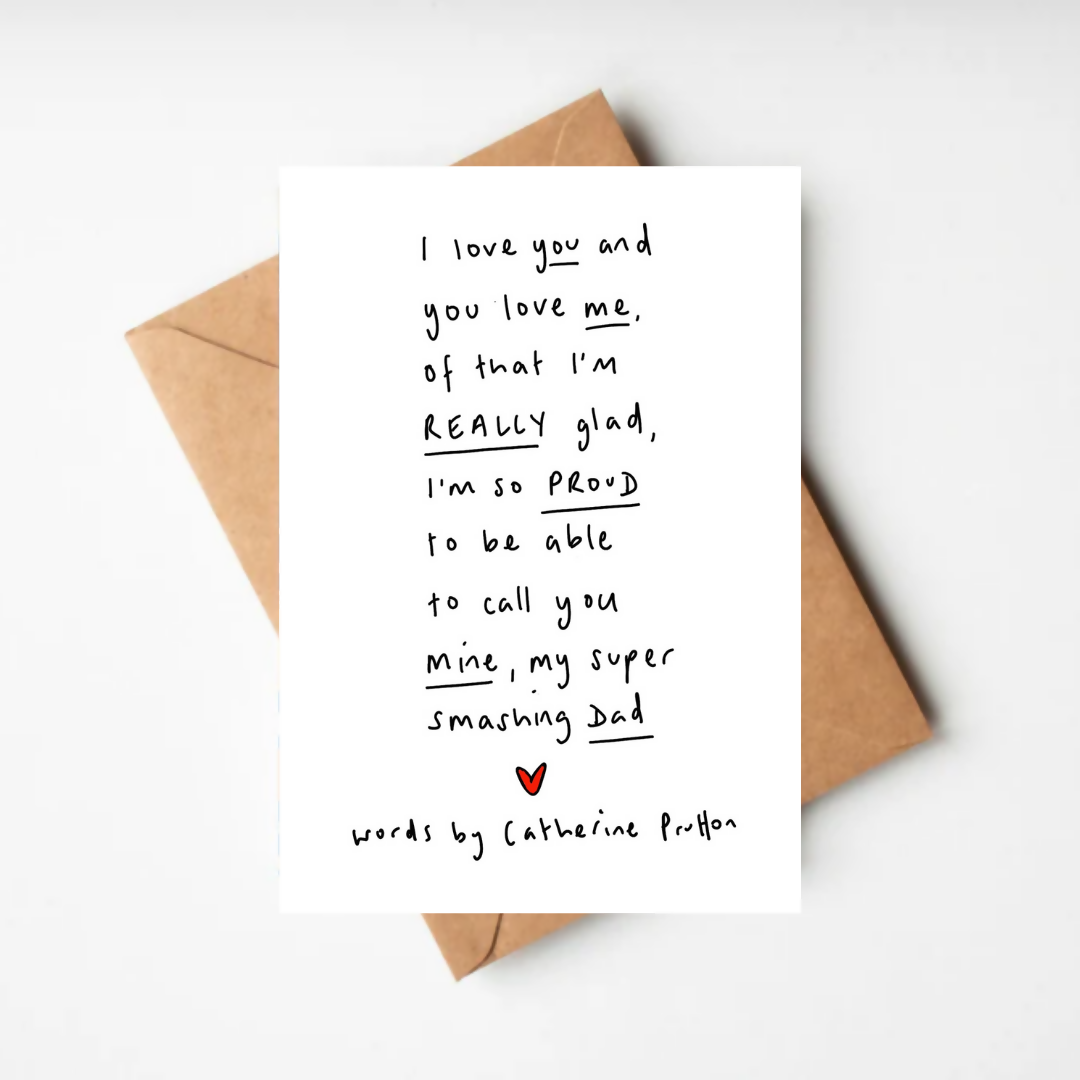 I love you and
you love me,
of that I'm
REALLY glad,
I'm so PROUD
to be able
to call you
mine, my super
smashing Dad
words by Catherine Prutton